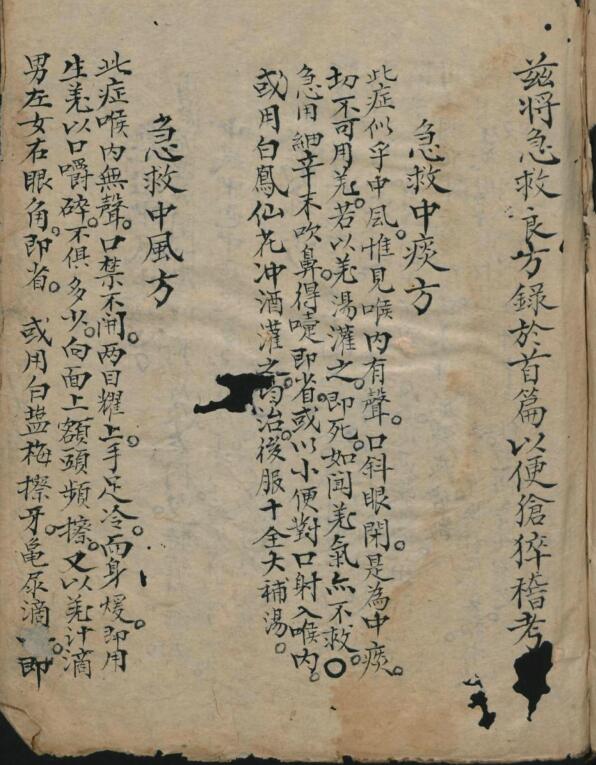 茲將急救良方錄於首篇以便猝稽考
急救中痰方
此症似乎中風。惟見喉内有聲。口斜眼閉。是為中痰。
切不可用羌。若以羌湯灌之。即死。如聞羌氣亦不救。
急用細辛末吹鼻。得嚏即省。或以小便對口射入喉内。
或用白鳳仙花冲酒灌之。均治。後服十全大補湯。
急救中風方
此症喉内無聲。口禁不開。两目耀上。手足冷。而身煖。即用
生羌以口嚼碎。不俱多少。向面上額頭頻擦。又以羌汁滴
男左女右眼角。即省。或用白盐梅擦牙。龜尿滴。即